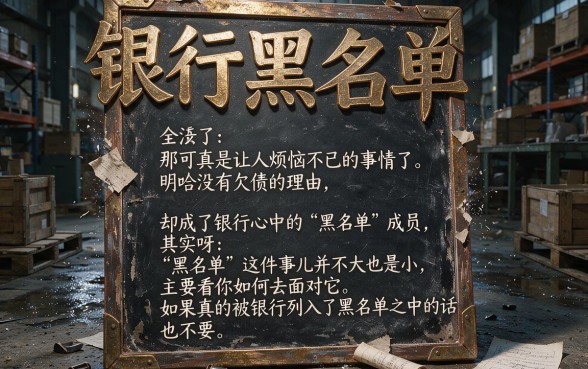 银行黑名单
全湰了：
那可真是让人烦恼不已的事情了。
明哈没有欠债的理由，
却成了银行心中的“黑名单”成员，
其实呀：
“黑名单”这件事儿并不大也是小，
主要看你如何去面对它。
如果真的被银行列入了黑名单之中的话
也不要。